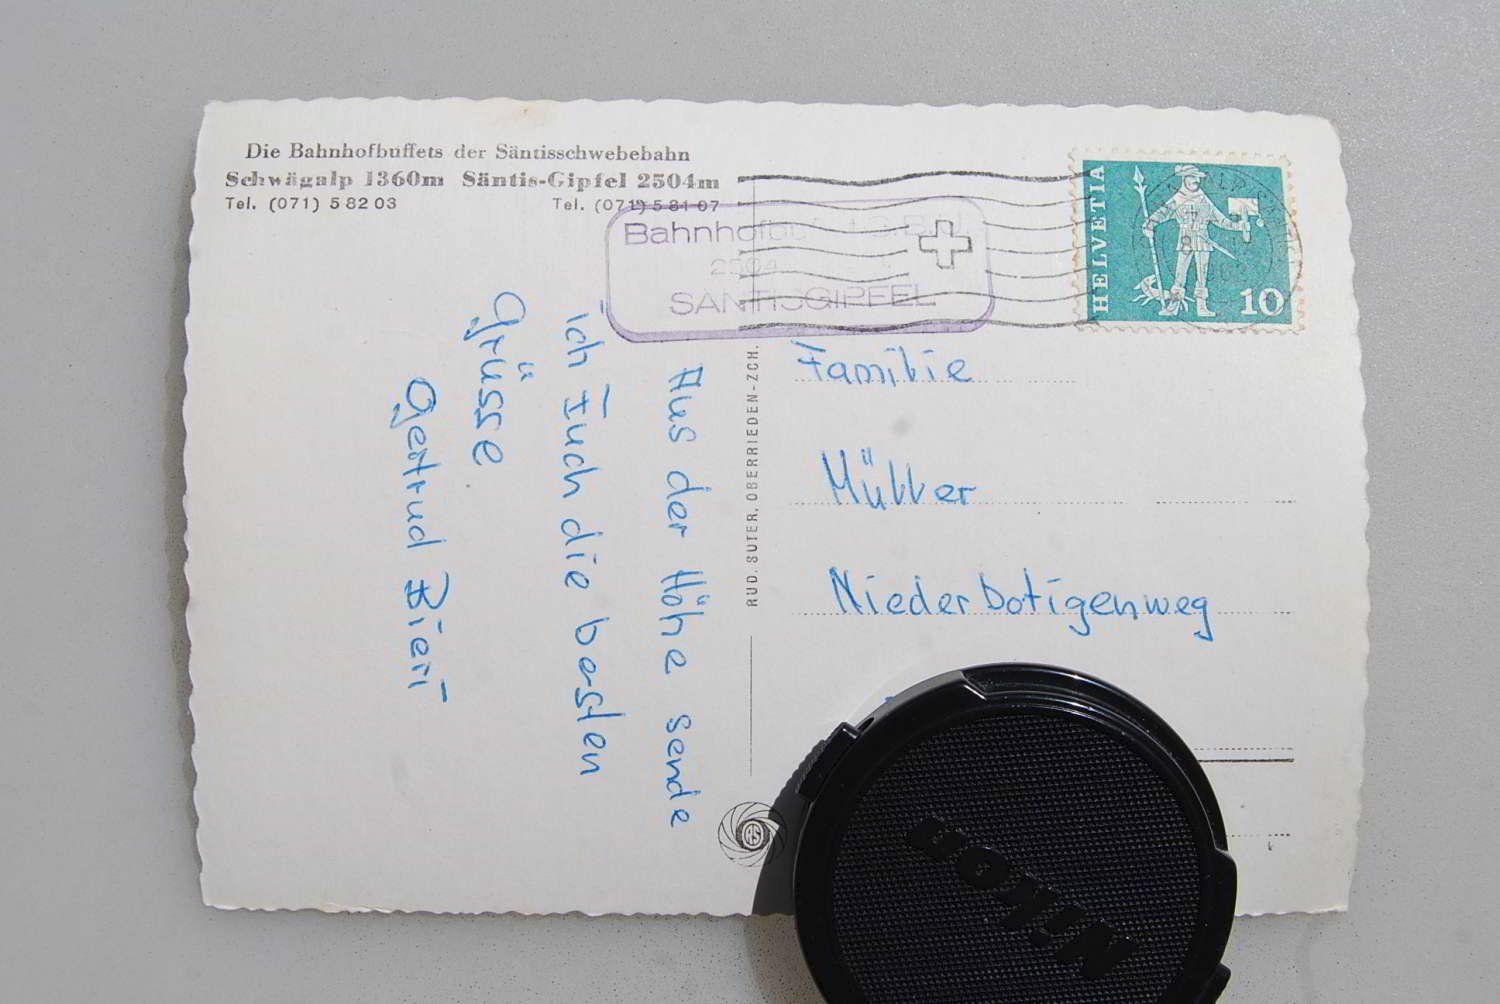 Die Bahnhofbuffets der Säntisschwebebahn
Schwägalp 1360m Säntis-Gipfel 2504m
Tel. (071) 5 82 03 Tel. (071) 5 81 07
Bahnhofb
2504
SÄNTISGIPFEL
HELVETIA
10
Aus der Höhe sende
ich Euch die besten
Grüsse
Gertrud Bieri
RUD. SUTER, OBERRIEDEN-ZCH.
RS
Familie
Müller
Niederbotigenweg
Nikon